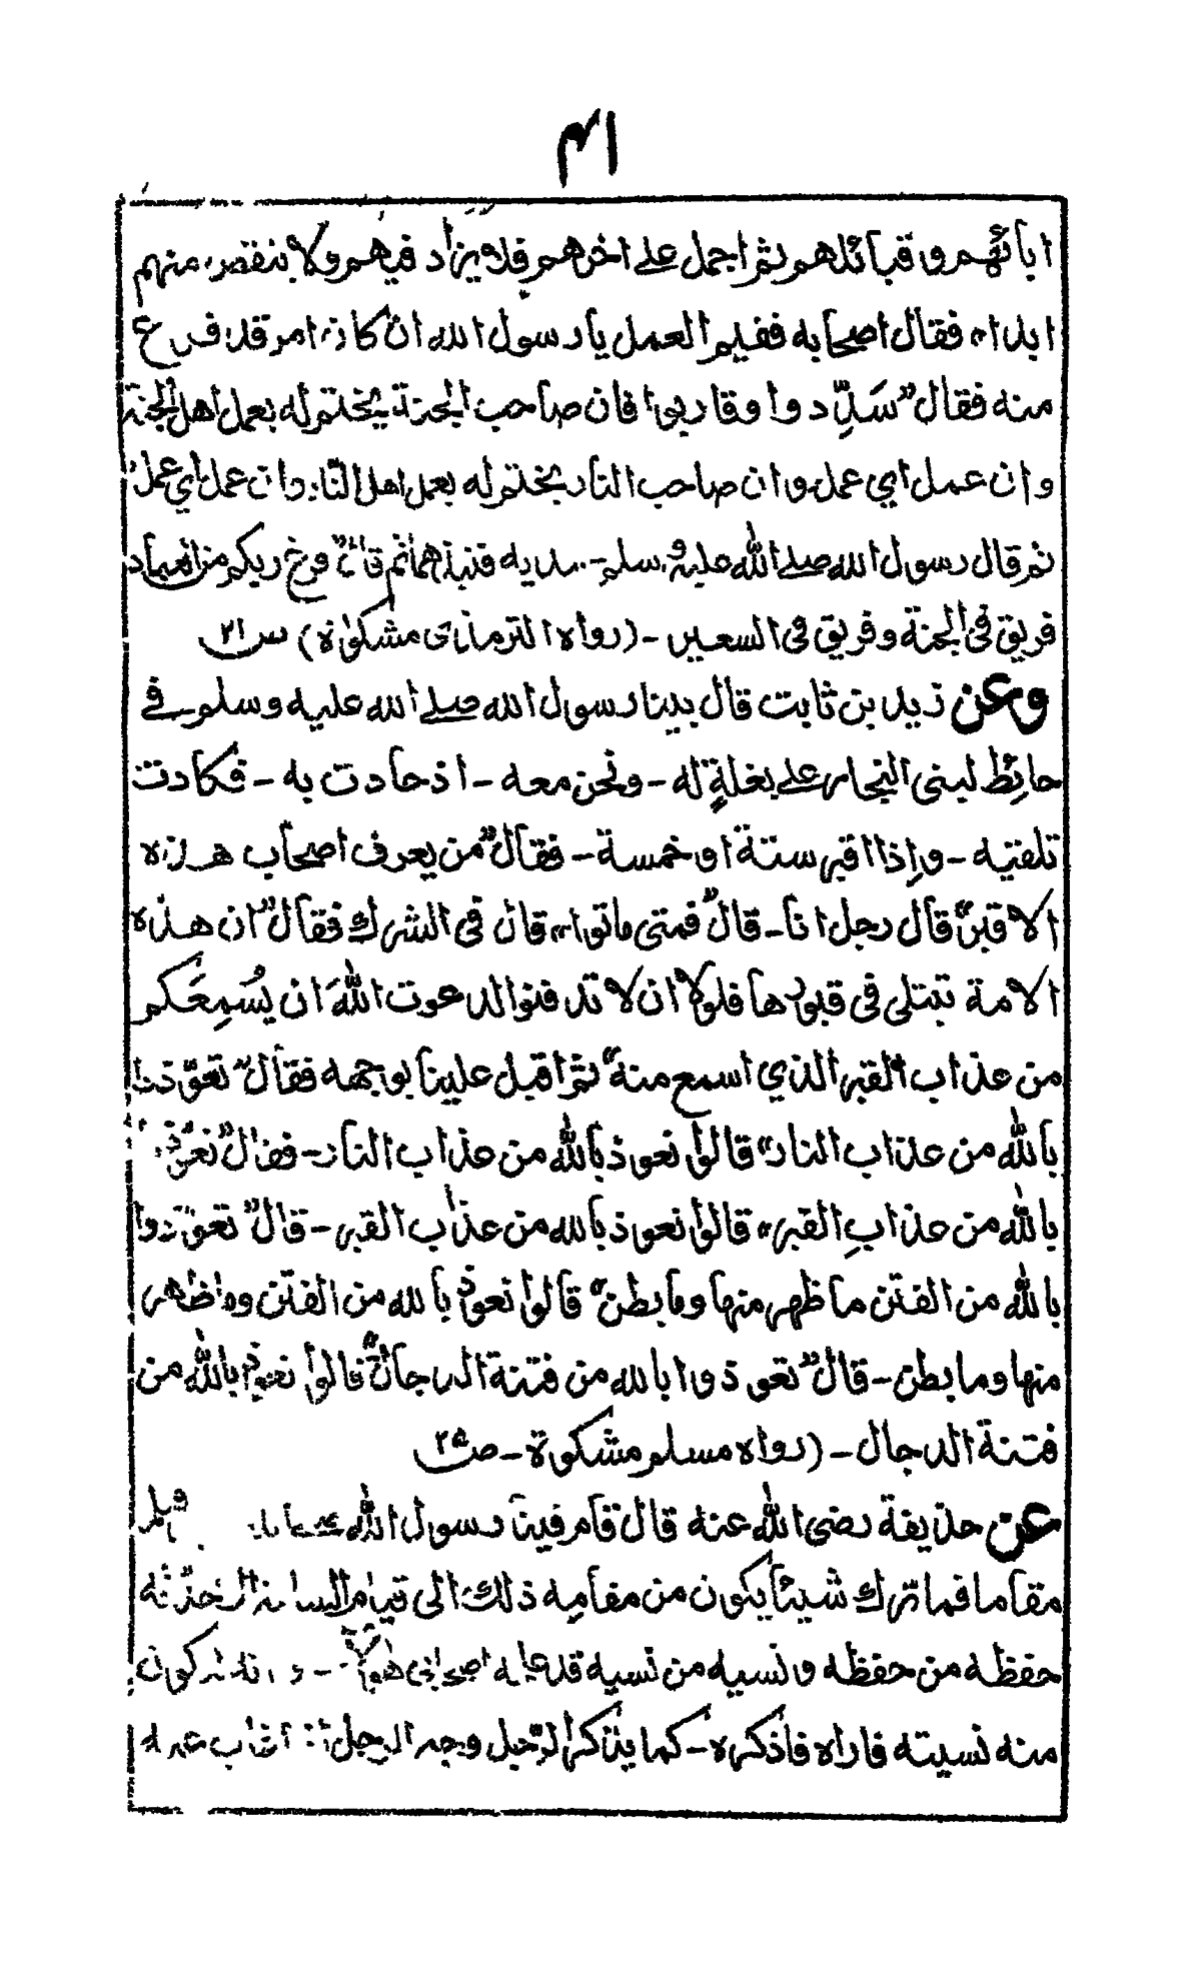 ۴۱
ابائهم وقبائلهم ثم اجمل على اخرهم فلا يزاد فيهم ولا ينقص منهم
ابدا" فقال اصحابه ففيم العمل يا رسول الله ان كان امر قد فرغ
منه فقال "سَدِّدوا وقاربوا فان صاحب الجنة يختم له بعمل اهل الجنة
وان عمل اي عمل وان صاحب النار يختم له بعمل اهل النّار وان عمل اي عمل"
ثم قال رسول الله صلى الله عليه وسلم بيديه فنبذهما ثم قال "فرغ ربكم من العباد
فريق فى الجنة وفريق فى السعير - (رواه الترمذى مشكوٰة) ص۲۱
وعن زيد بن ثابت قال بينا رسول الله صلى الله عليه وسلم فى
حائِط لبنى النجار على بغلةٍ له - ونحن معه - اذ حادت به - فكادت
تلقيه - واِذا اقبر ستة او خمسة - فقال "من يعرف اصحاب هذه
الاقبر" قال رجل انا - قال "فمتى ماتوا" قال فى الشرك فقال "ان هذه
الامة تبتلى فى قبورها فلولا ان لا تدفنوا لدعوت اللهَ ان يُسْمِعَكم
من عذاب القبر الذي اسمع منه" ثم اقبل علينا بوجهه فقال "تعوّذوا
بالله من عذاب النار" قالوا نعوذ بالله من عذاب النار - فقال "تعوّذوا
بالله من عذابِ القبر" قالوا نعوذ بالله من عذاب القبر - قال "تعوّذوا
بالله من الفتن ما ظهر منها وما بطن" قالوا نعوذ بالله من الفتن وما ظهر
منها وما بطن - قال "تعوذوا بالله من فتنة الدجال" قالوا نعوذ بالله من
فتنة الدجال - (رواه مسلم مشكوة - ص۲۵
عن حذيفة رضى الله عنه قال قام فينا رسول الله
مقاما فما ترك شيئا يكون من مقامِه ذلك الى قيام الساعة الا حدّث به
حفظه من حفظه ونسيه من نسيه قد علمه اصحابى هٰؤلاء - و انه ليكون
منه نسيته فاراه فاذكره - كما يذكر الرّجل وجه الرجل اذا غاب عنه